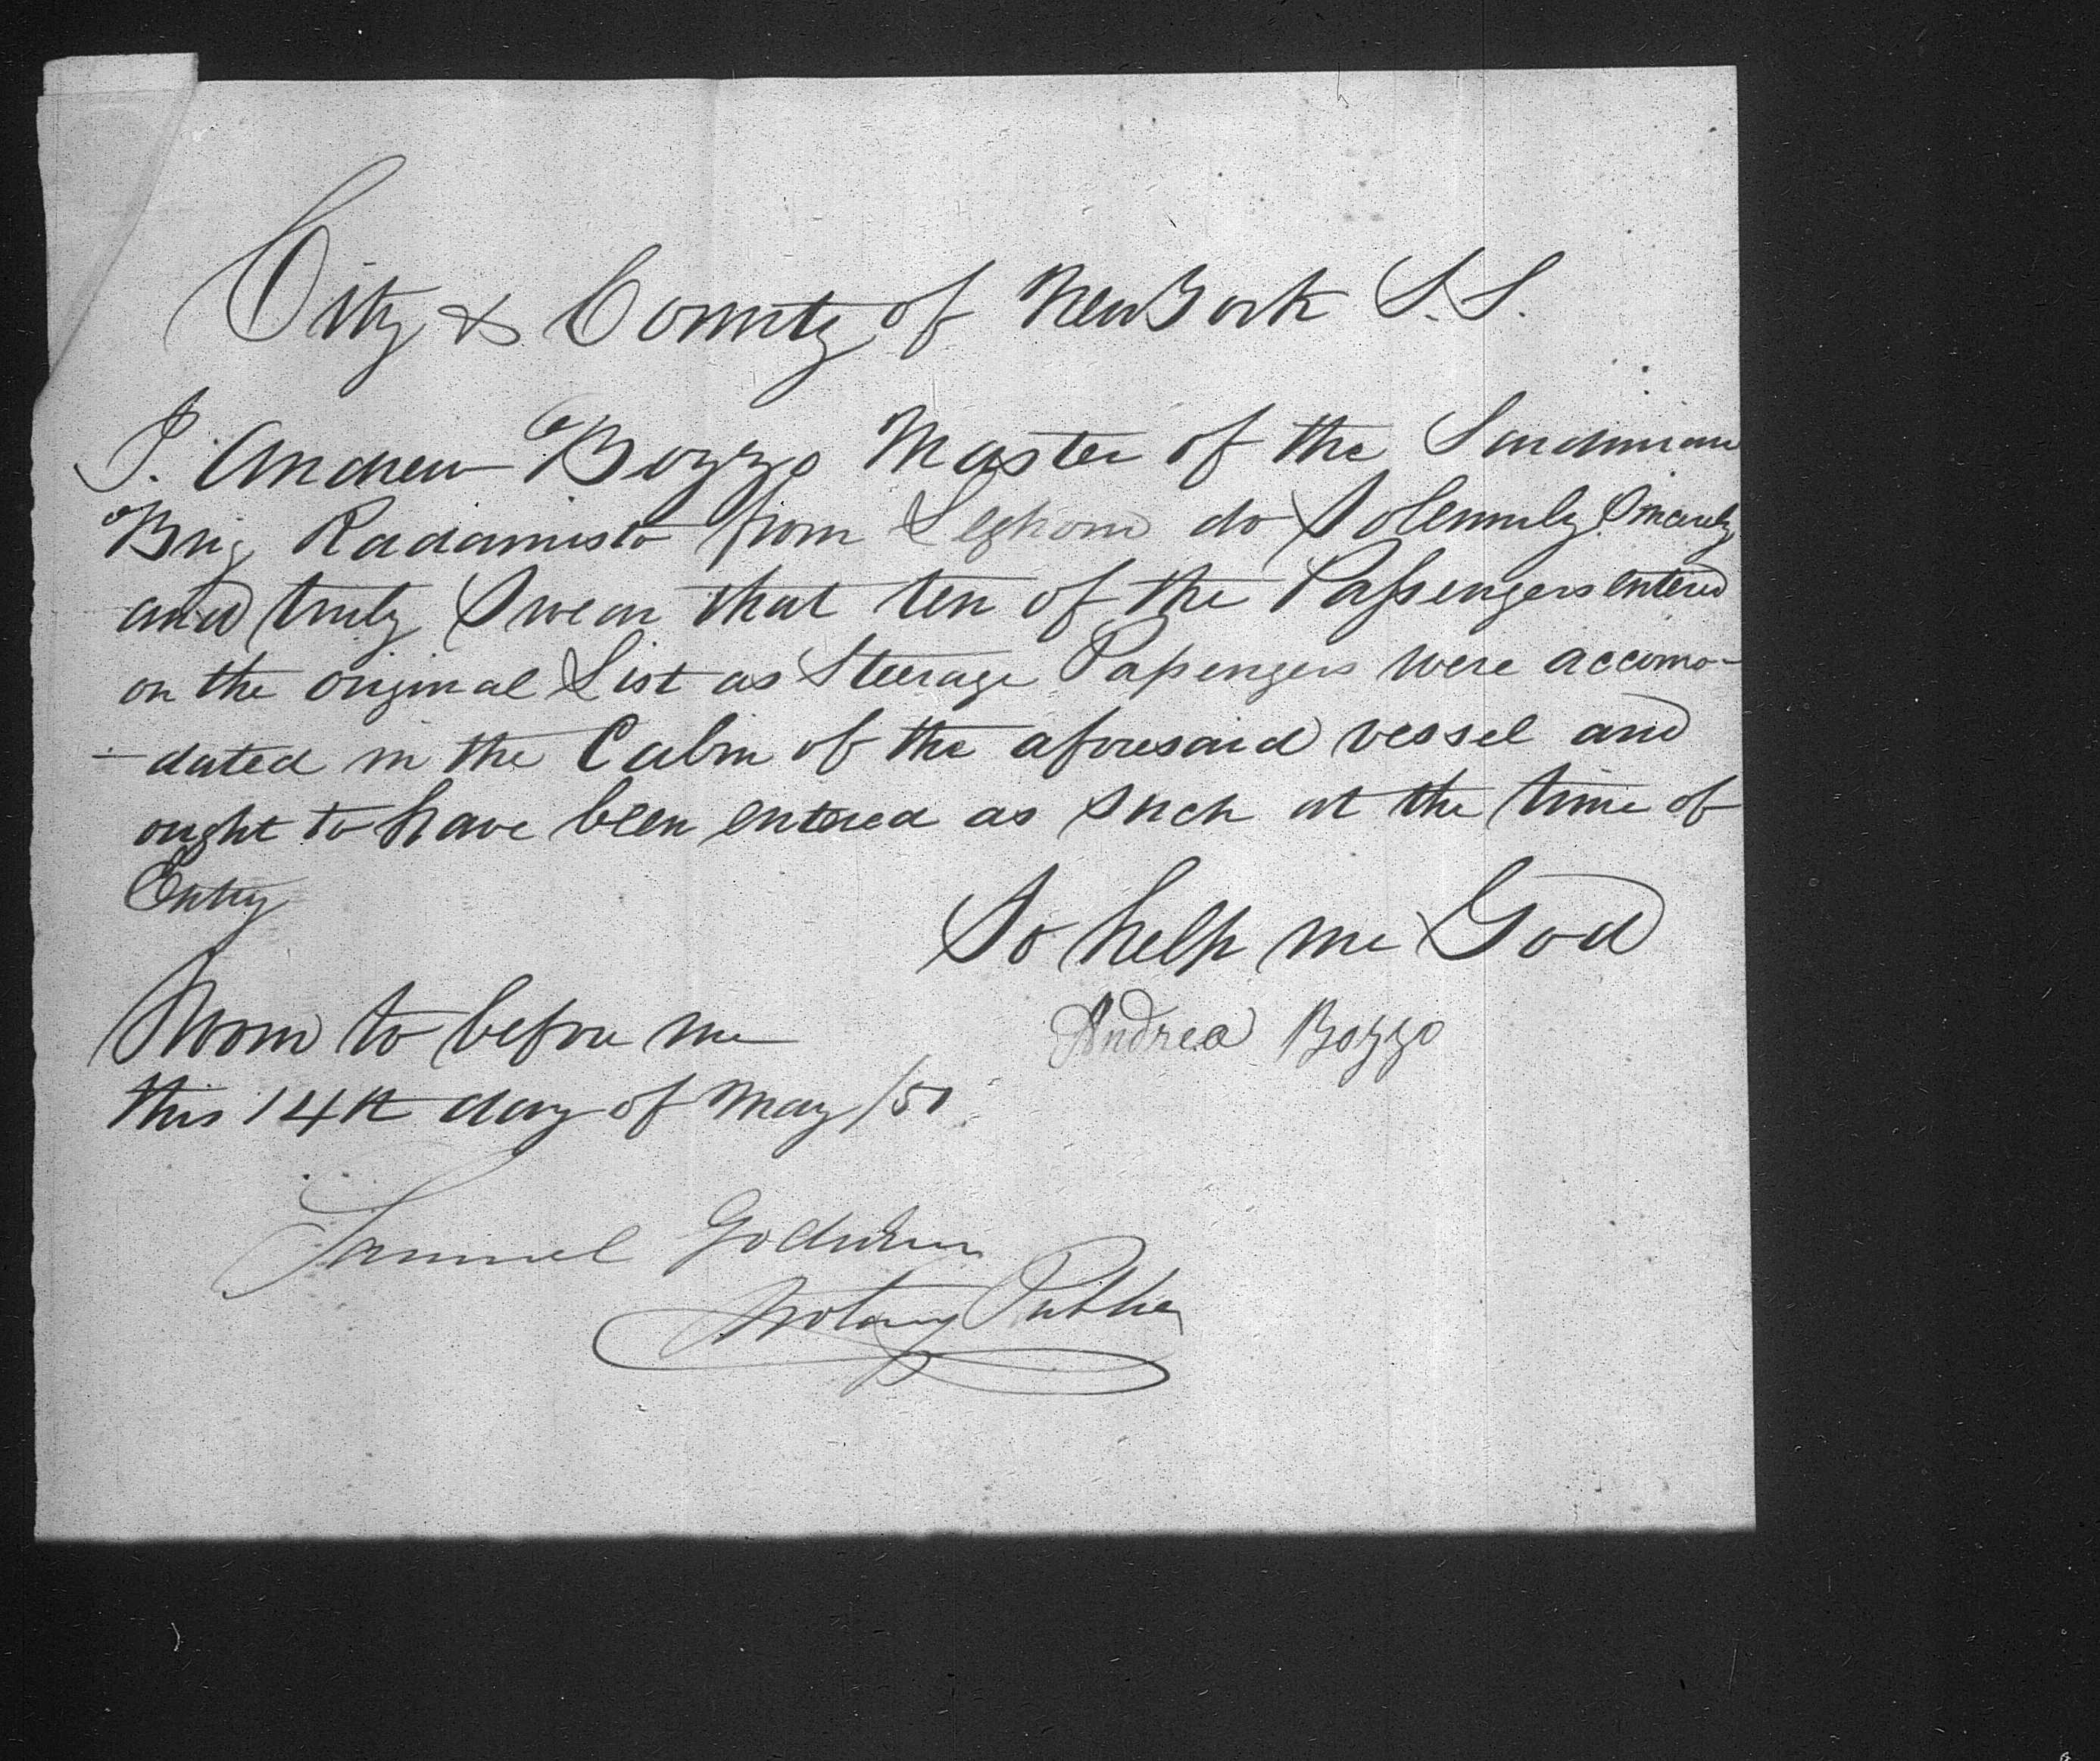 City & County of New York S.S.
I. Andrew Bozzo Master of the Sardinian
Brig Radamisto from Leghorn do Solemnly Sincerely
and truly Swear that ten of the Passengers entered
on the original List as Steerage Passengers were accomo-
-dated in the Cabin of the aforesaid vessel and
ought to have been entered as such at the time of
Entry
So help me God
Sworn to before me
Andrea Bozzo
this 14th day of May /50
Samuel
Notary Public